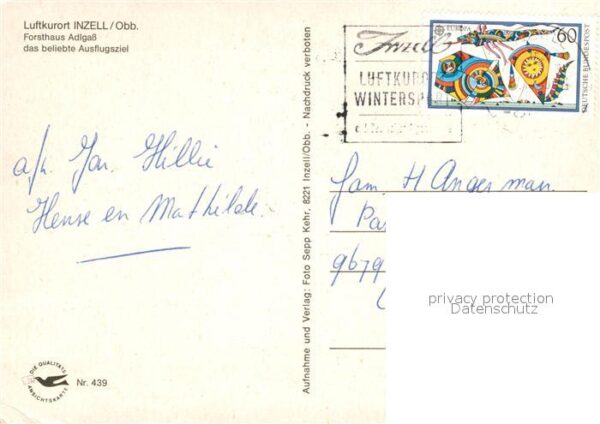 Luftkurort INZELL/Obb.
Forsthaus Adlgaß
das beliebte Ausflugsziel
Inzell
LUFTKURORT
WINTERSP
EUROPA
60
DEUTSCHE BUNDESPOST
Aufnahme und Verlag: Foto Sepp Kehr, 8221 Inzell/Obb. - Nachdruck verboten
Fam. H Angerman
9679
privacy protection
Datenschutz
Hense en Mathilde.
DIE QUALITÄTS
ANSICHTSKARTE
Nr. 439